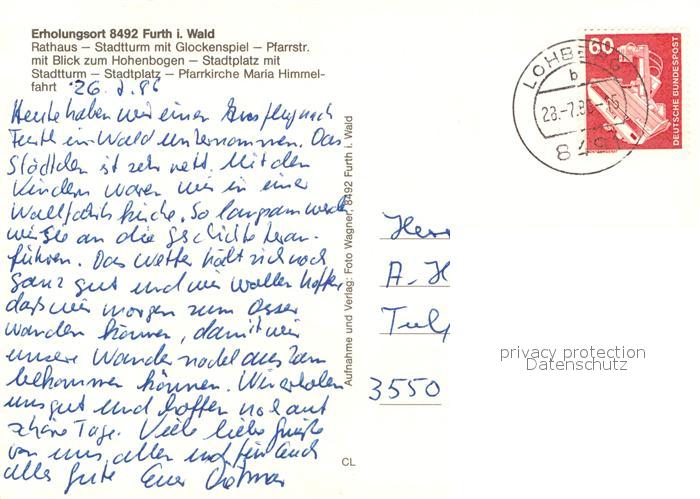 Erholungsort 8492 Furth i. Wald
Rathaus – Stadtturm mit Glockenspiel – Pfarrstr.
mit Blick zum Hohenbogen – Stadtplatz mit
Stadtturm – Stadtplatz – Pfarrkirche Maria Himmel-
fahrt
26.7.86
Heute haben wir einen Ausflug nach
Furth im Wald unternommen. Das
Städtchen ist sehr nett. Mit den
Kindern waren wir in einer
Wallfahrtskirche. So langsam werde
wir sie an die Geschichte heran-
führen. Das Wetter hält sich noch
ganz gut und wir wollen hoffen
daß wir morgen zum Osser
wandern können, damit wir
unsere Wandernadel auch
bekommen können. Wir erholen
uns gut und hoffen noch auf
schöne Tage. Viele liebe Grüße
von uns allen und für Euch
alles gute Euer
Aufnahme und Verlag: Foto Wagner, 8492 Furth i. Wald
CL
60
DEUTSCHE BUNDESPOST
LOHBERG
b
28.-7.86-15
8491
Herr
A. H
Tulp
3550
privacy protection
Datenschutz